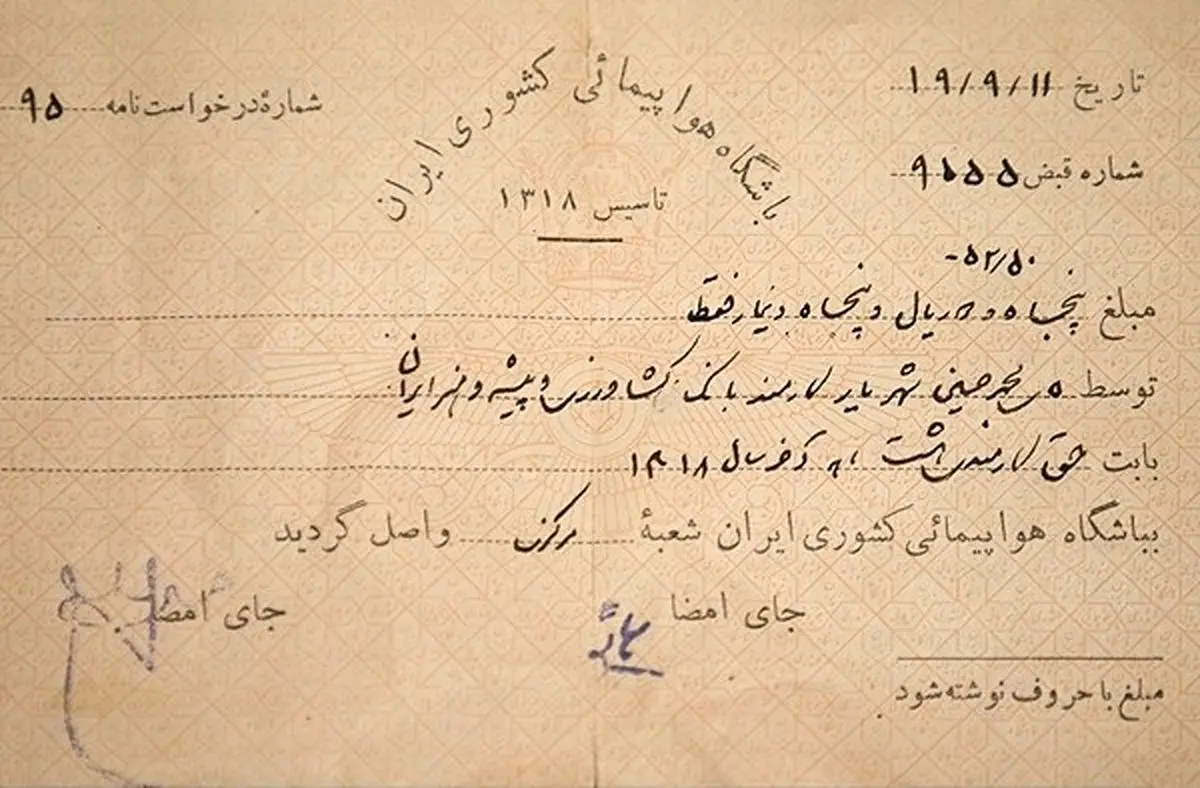 باشگاه هواپیمائی کشوری ایران
تاسیس ۱۳۱۸
تاریخ ۱۹/۹/۱۱
شماره قبض ۹۱۵۵
شمارهٔ درخواست نامه ۹۵
۵۲/۵۰-
مبلغ پنجاه و دو ریال و پنجاه دینار فقط
توسط حسینی شهریار کارمند بانک کشاورزی و پیشه و هنر ایران
بابت حق کارمندی هشت سال ۱۳۱۸
بباشگاه هواپیمائی کشوری ایران شعبهٔ مرکزی واصل گردید
جای امضا
جای امضا
مبلغ با حروف نوشته شود